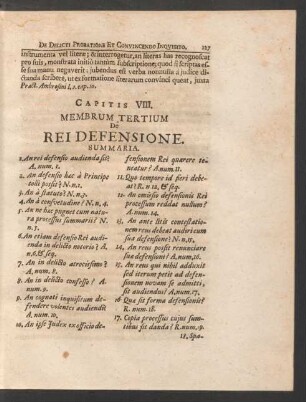 DE DELICTI PROBATIONE ET CONVINCENDO INQUISITO. 127
instrumenta vel literæ; & interrogetur, an literas has recognoscat
pro suis, monstrata initiò tantùm subscriptione; quod si scriptas es-
se suâ manu negaverit; jubendus est verba nonnulla à judice di-
ctanda scribere, ut ex similitudine literarum convinci queat, juxta
Pract. Ambrosini l. 1. cap. 10.
CAPITIS VIII.
MEMBRUM TERTIUM
DE
REI DEFENSIONE.
SUMMARIA.
1. An rei defensio audienda sit?
A. num. 1.
2. An defensio hæc à Principe
tolli possit? N. n. 2.
3. An à statuto? N. n. 3.
4. An à consvetudine? N. n. 4.
5. An ne hac pugnet cum natu-
ra processus summarii? N.
n. 5.
6. An etiam defensio Rei audi-
enda in delicto notorio? A.
n. 6. & seq.
7. An in delicto atrocissimo?
A. num. 8.
8. An in delicto confesso? A
num. 9.
9. An cognati inquisitum de-
fendere volentes audiendi?
A. num. 10.
10. An ipse Judex ex officio de-
fensionem Rei quærere te-
neatur? A num. 11.
11. Quo tempore id fieri debe-
at? R. n. 12. & seq.
12. An omissio defensionis Rei
processum reddat nullum?
A. num. 14.
13. An ante litis contestatio-
nem reus debeat audiri cum
sua defensione? N. 15.
14. An reus possit renunciare
suæ defensioni? A. num. 16.
15. An reus qui nihil adduxit
sed iterum petit ad defensi-
onem novam se admitti,
sit audiendus? A. num. 17.
16. Quæ sit forma defensionis?
R. num. 18.
17. Copia processus cujus sum-
tibus sit danda? R. num. 19.
18. Spa-